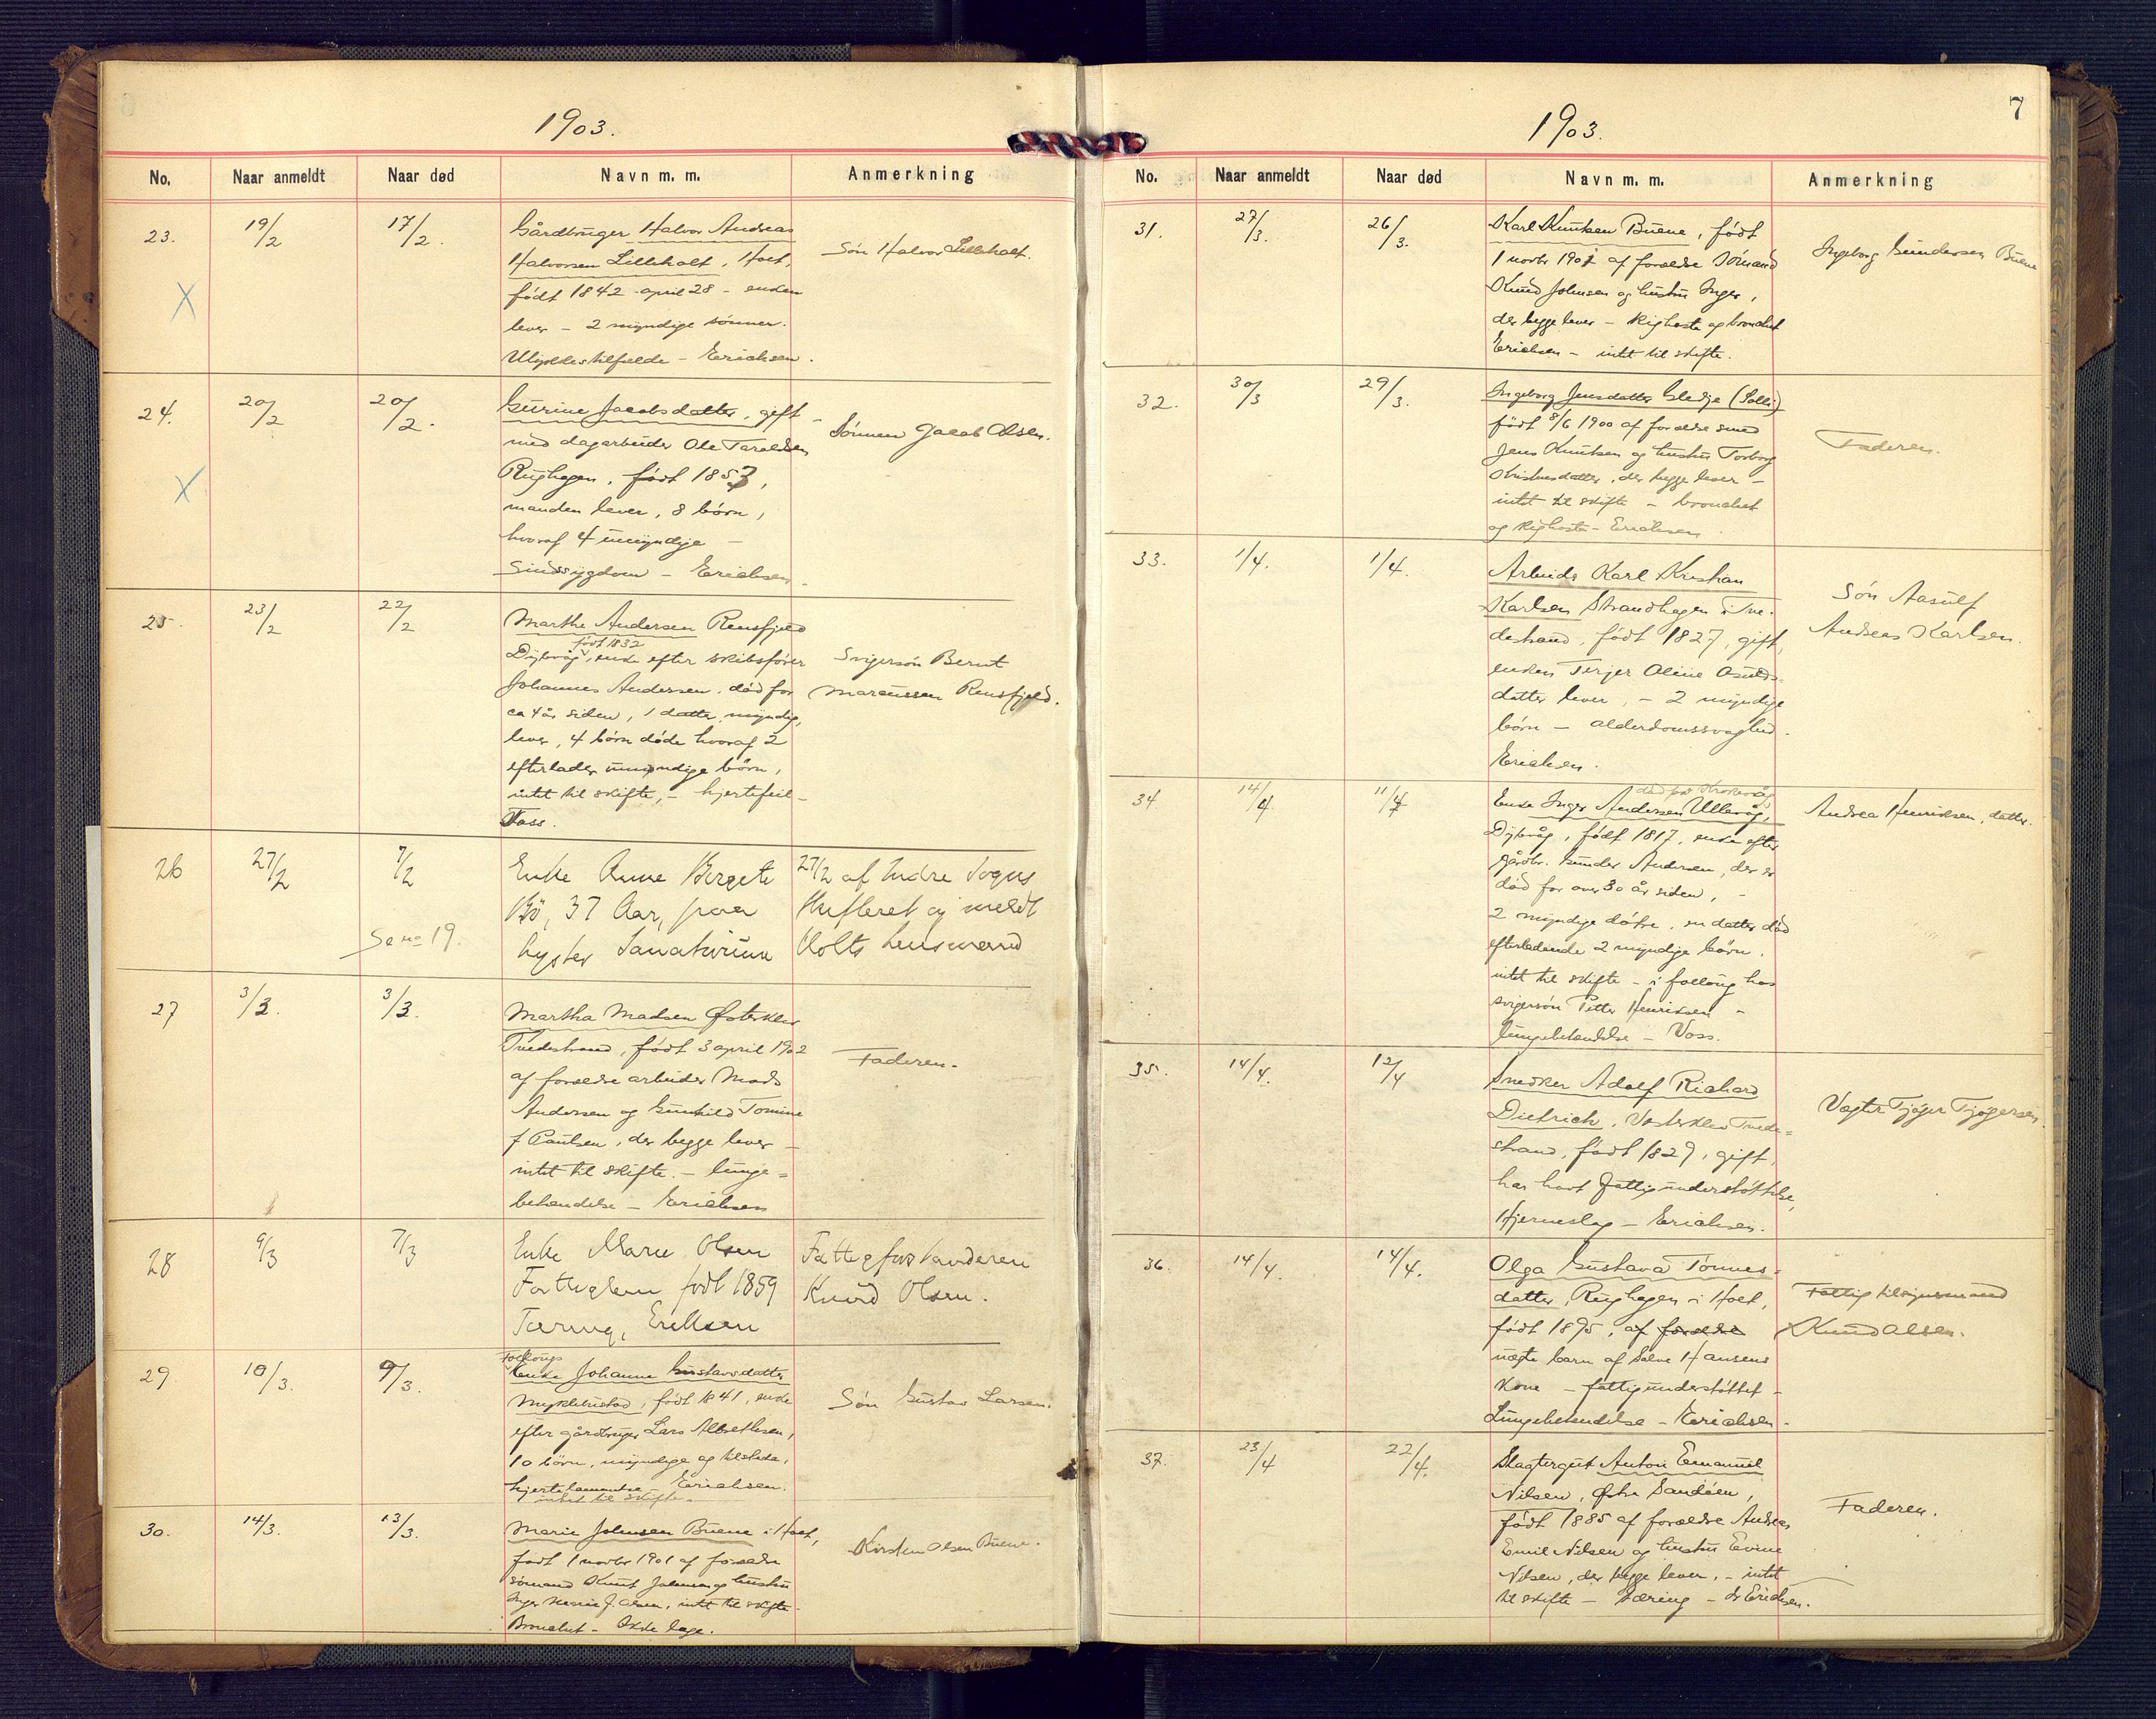 1903.
No. Naar anmeldt Naar død Navn m. m. Anmerkning
23. 19/2 17/2. Gårdbruger Halvor Andreas
Halvorsen Lilleholt, Holt,
født 1842 april 28 - enken
lever - 2 myndige sønner.
Ulykkestilfælde - Erichsen.
Søn Halvor Lilleholt.
X
24. 20/2 20/2. Gurine Jacobsdatter, gift
med dagarbeider Ole Taraldsen
Rughagen, født 1853,
manden lever, 8 børn,
hvoraf 4 umyndige -
Sindssygdom - Erichsen.
Sønnen Jacob Olsen.
X
25. 23/2 22/2 Marthe Andersen Rensfjeld
født 1832
Dybvåg, enke efter skibsfører
Johannes Andersen, død for
ca 4 år siden, 1 datter, myndig,
lever, 4 børn døde hvoraf 2
efterlader umyndige børn,
intet til skifte, - hjertefeil -
Voss.
Svigersøn Bernt
Marcussen Rensfjeld.
26 27/2 7/2 Enke Anne Bergete
Bø, 37 Aar, paa
Lyster Sanatorium
Se no 19.
27/2 af Indre Sogns
Skifteret og meldt
Holts Lensmand
27 3/3. 3/3. Martha Madsen Østerklev
Tvedestrand, født 3 april 1902
af forældre arbeider Mads
Andersen og Gunhild Tomine
f Paulsen, der begge lever -
intet til skifte. - lunge=
betændelse - Erichsen
Faderen.
28 9/3 7/3 Enke Marie Olsen
Fattiglem født 1859
Tæring, Eriksen
Fattigforstanderen
Knud Olsen.
29 10/3. 9/3. Follougs
Enke Johanne Gustavsdatter
Myklebustad, født 1841, enke
efter gårdbruger Lars Albrethsen,
10 børn, myndige og tilstede,
hjertelammelse - Erichsen.
intet til skifte.
Søn Gustav Larsen.
30. 14/3. 13/3. Marie Johnsen Buene i Holt,
født 1 novbr 1901 af forældre
sømand Knut Johnsen og hustru
Inger Marie J. Olsen, intet til skifte -
Bronchit - Ikke læge.
Kirsten Olsen Buene.
7
1903.
No. Naar anmeldt Naar død Navn m. m. Anmerkning
31. 27/3. 26/3. Karl Knutsen Buene, født
1 novbr 1901 af forældre sømand
Knud Johnsen og hustru Inger,
der begge lever - kighoste og bronchit
Erichsen - intet til skifte.
Ingeborg Gundersen Buene
32. 30/3 29/3. Ingeborg Jensdatter Gledje (Solli)
født 8/6 1900 af forældre smed
Jens Knutsen og hustru Torborg
Kristensdatter, der begge lever -
intet til skifte - bronchit
og kighoste - Erichsen.
Faderen.
33. 1/4. 1/4. Arbeider Karl Kristian
Karlsen Strandhagen i Tve-
destrand, født 1827, gift,
enken Terjer Oline Osulds-
datter lever, - 2 myndige
børn - alderdomssvaghed.
Erichsen.
Søn Aasulf
Andreas Karlsen.
34 14/4 11/4 Enke Inger Andersen Ullevåg,
Dybvåg, født 1817, enke efter
gårdbr. Gunder Andersen, der er
død for over 30 år siden, -
2 myndige døtre, en datter død
efterladende 2 myndige børn,
intet til skifte - i folloug hos
svigersøn Petter Henriksen -
lungebetændelse - Voss.
Andrea Henriksen, datter.
35. 14/4. 12/4 Snedker Adolf Richard
Dietrich, Vesterklev Tvede=
strand, født 1829, gift,
har havt fattigunderstøttelse,
Hjerneslag - Erichsen.
Vægter Tjøger Tjøgersen.
36. 14/4. 14/4. Olga Gustava Tønnes-
datter, Rughagen i Holt,
født 1895, af forældre
uægte barn af Salve Hansens
Kone - fattigunderstøttet -
Lungebetændelse - Erichsen -
Fattigtilsynsmand
Knud Olsen.
37. 23/4 22/4. Slagtergut Anton Emanuel
Nilsen, Østre Sandøen,
født 1885 af forældre Andreas
Emil Nilsen og hustru Evine
Nilsen, der begge lever, - intet
til skifte - tæring - dr Erichsen.
Faderen.